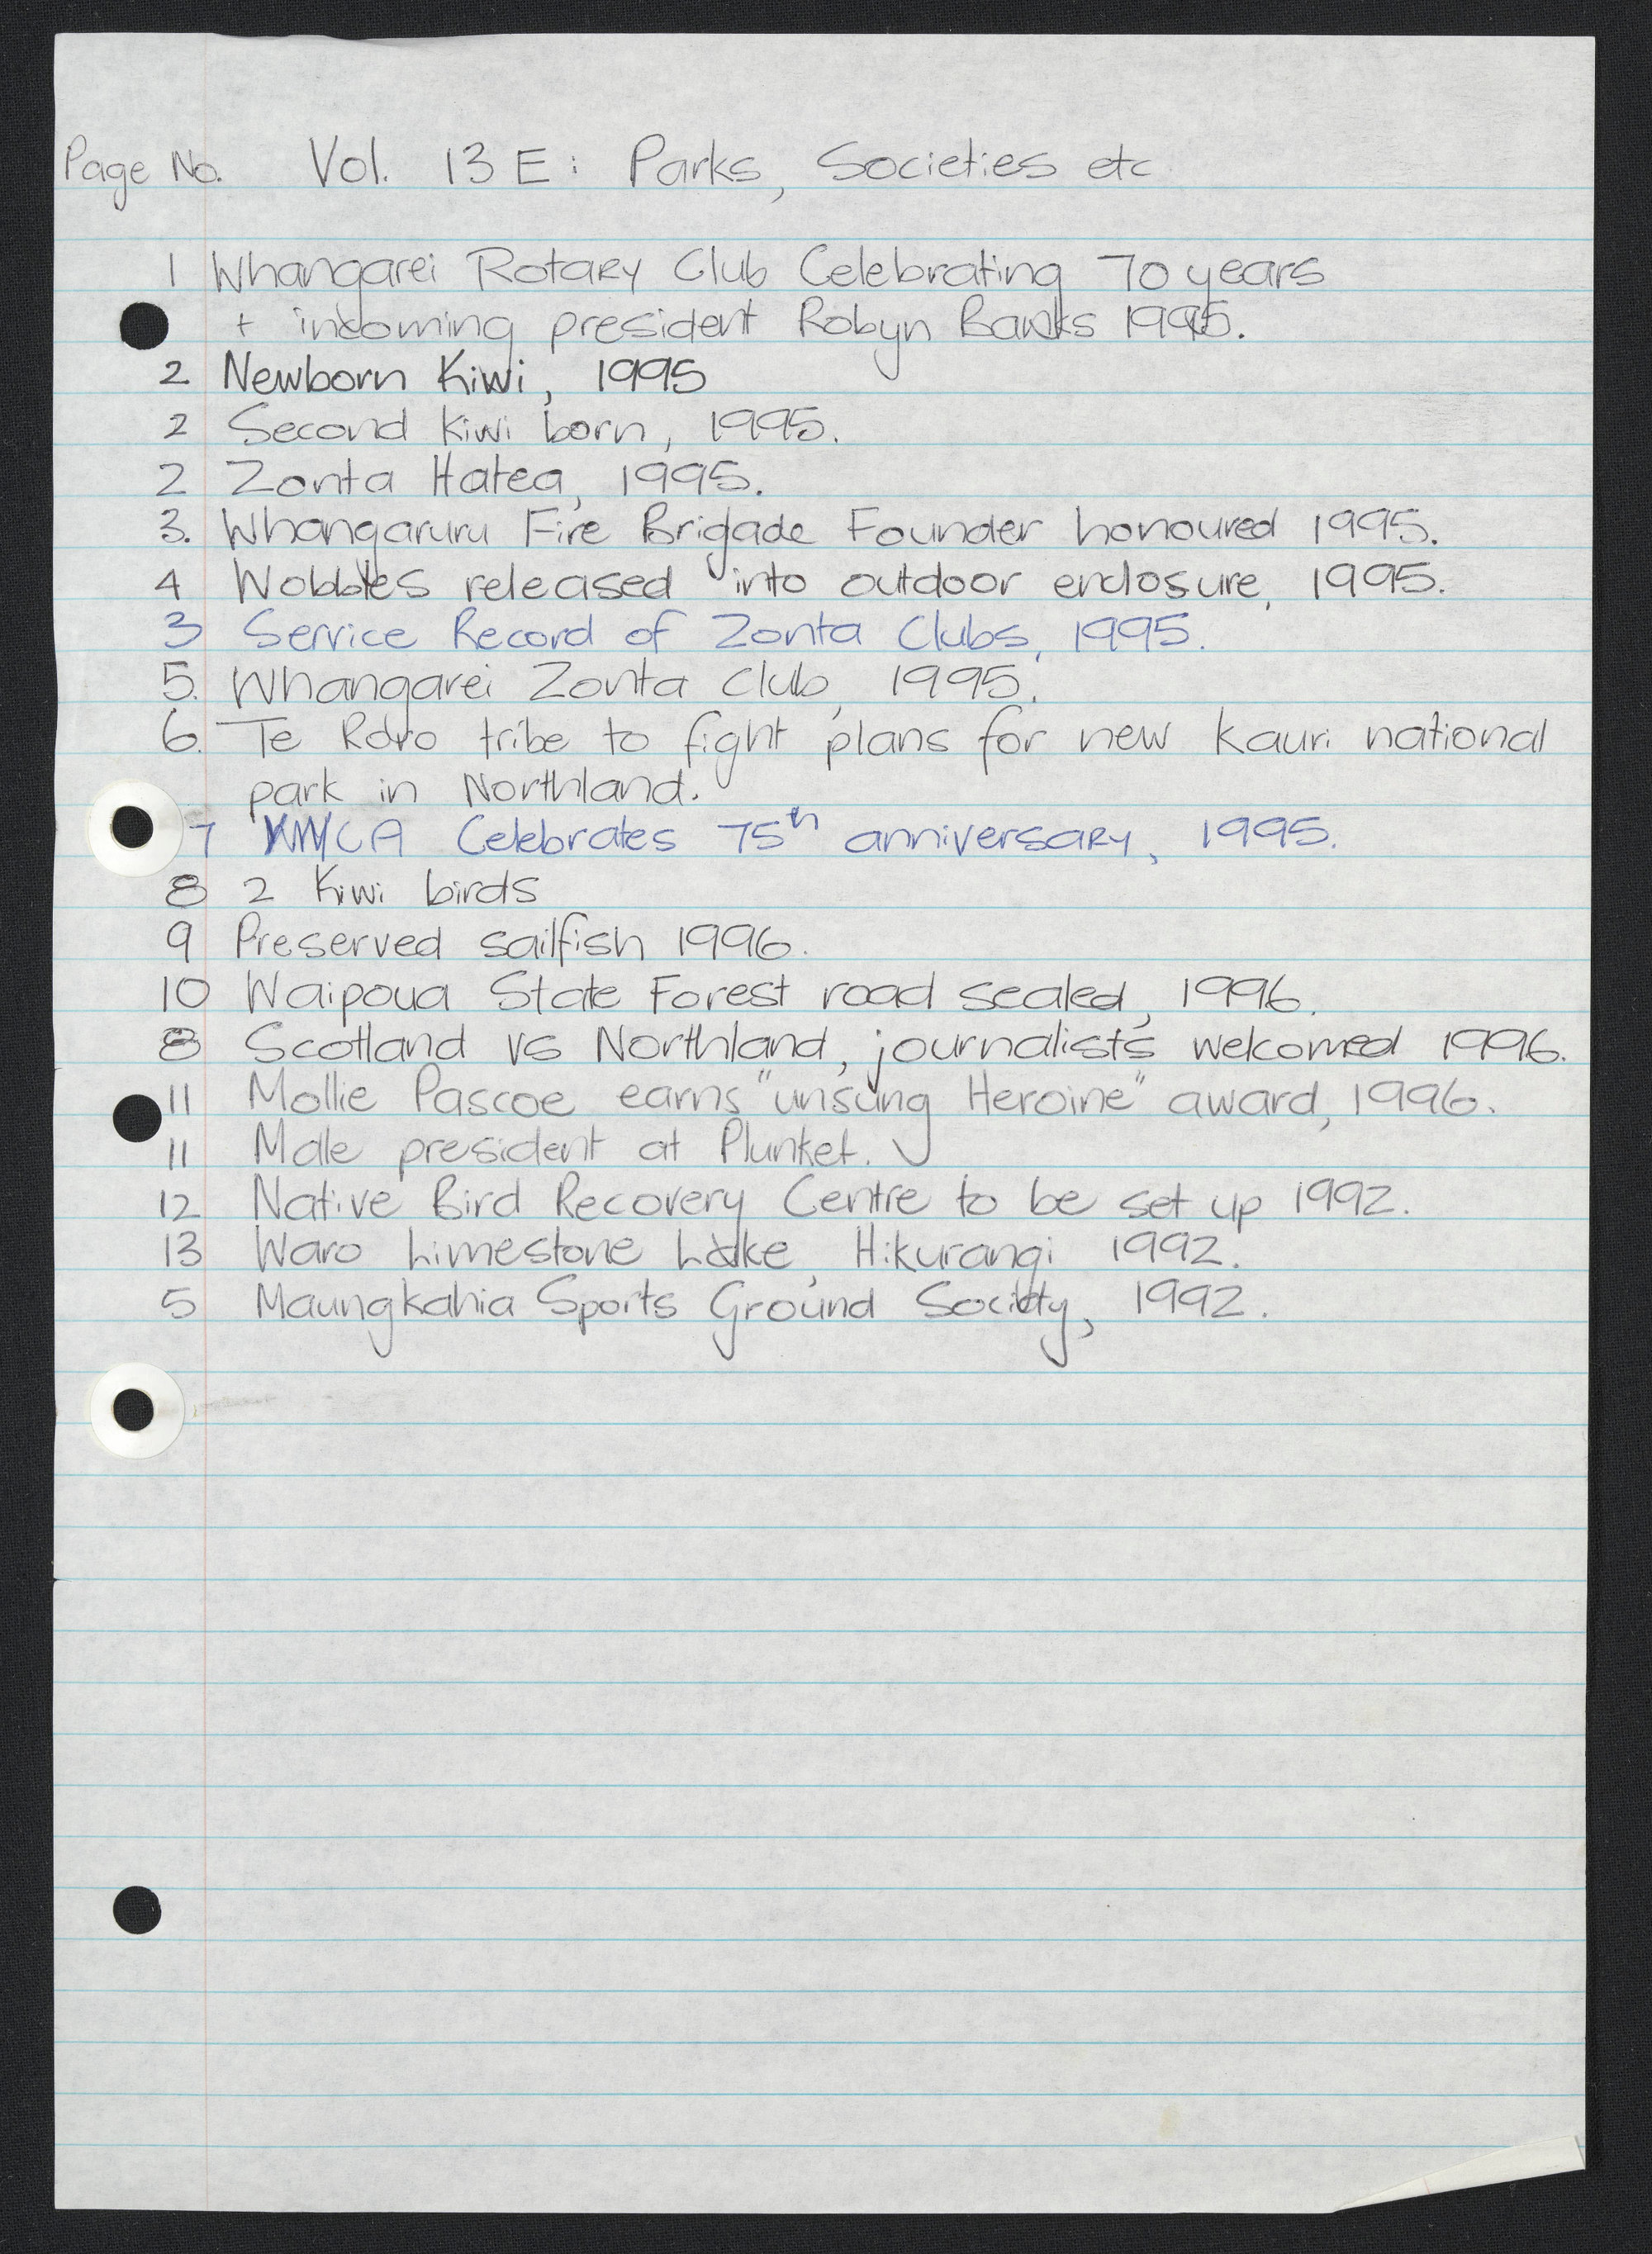 Page No. Vol. 13 E: Parks, Societies etc
1 Whangarei Rotary Club Celebrating 70 years
+ incoming president Robyn Banks 1995.
2 Newborn Kiwi, 1995
2 Second kiwi born, 1995.
2 Zonta Hatea, 1995.
3. Whangaruru Fire Brigade Founder honoured 1995.
4 Wobbles released into outdoor enclosure, 1995.
3 Service Record of Zonta Clubs, 1995.
5. Whangarei Zonta Club, 1995.
6. Te Roro tribe to fight plans for new kauri national
park in Northland.
7 YWCA Celebrates 75th anniversary, 1995.
8 2 Kiwi birds
9 Preserved sailfish 1996.
10 Waipoua State Forest road sealed, 1996.
8 Scotland vs Northland, journalists welcomed 1996.
11 Mollie Pascoe earns "unsung Heroine" award, 1996.
11 Male president at Plunket.
12 Native Bird Recovery Centre to be set up 1992.
13 Waro Limestone Lake, Hikurangi 1992.
5 Maungkahia Sports Ground Society, 1992.